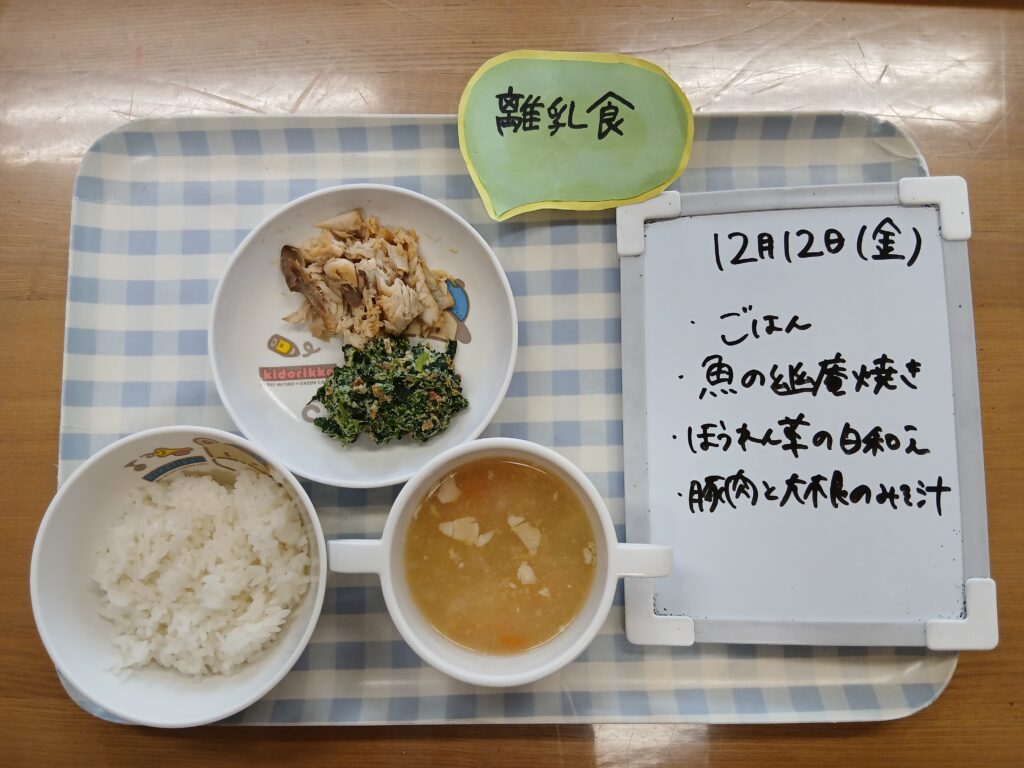 離乳食
12月12日(金)
・ごはん
・魚の幽庵焼き
・ほうれん草の白和え
・豚肉と大根のみそ汁
kidorikko